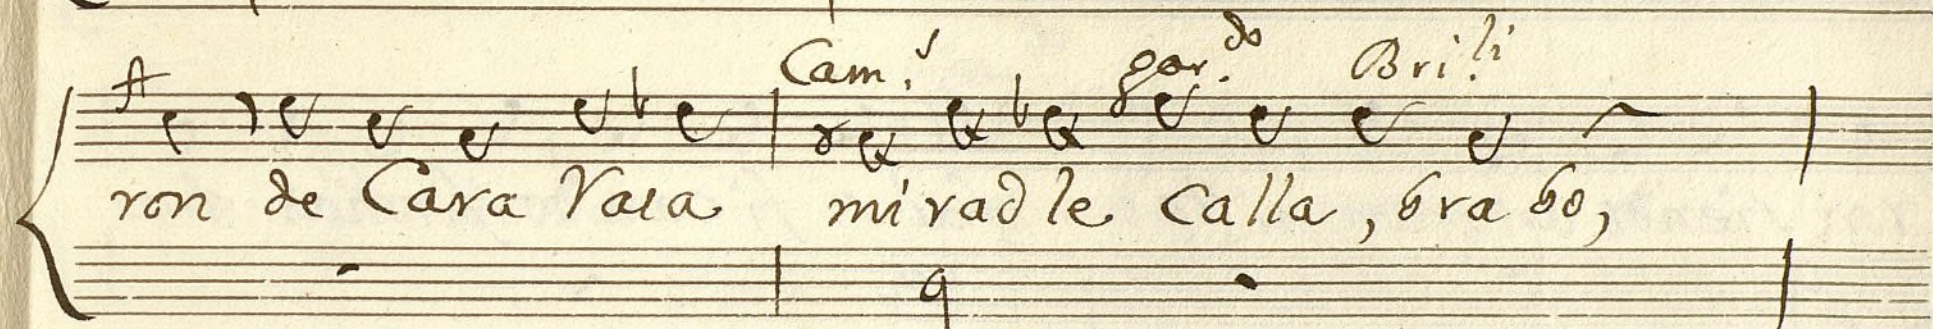 Cam.s gar.do Bri.li
ron de Cara Vaca mirad le Calla, brabo,